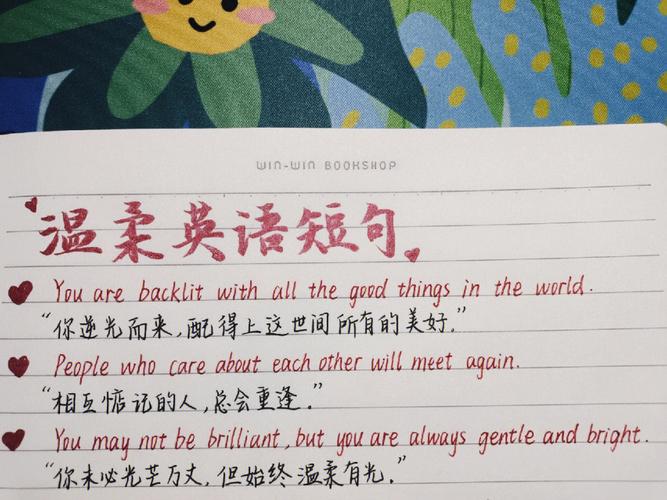 WIN-WIN BOOKSHOP
温柔英语短句
You are backlit with all the good things in the world.
“你逆光而来,配得上这世间所有的美好.”
People who care about each other will meet again.
“相互惦记的人,总会重逢.”
You may not be brilliant, but you are always gentle and bright.
“你未必光芒万丈,但始终温柔有光.”